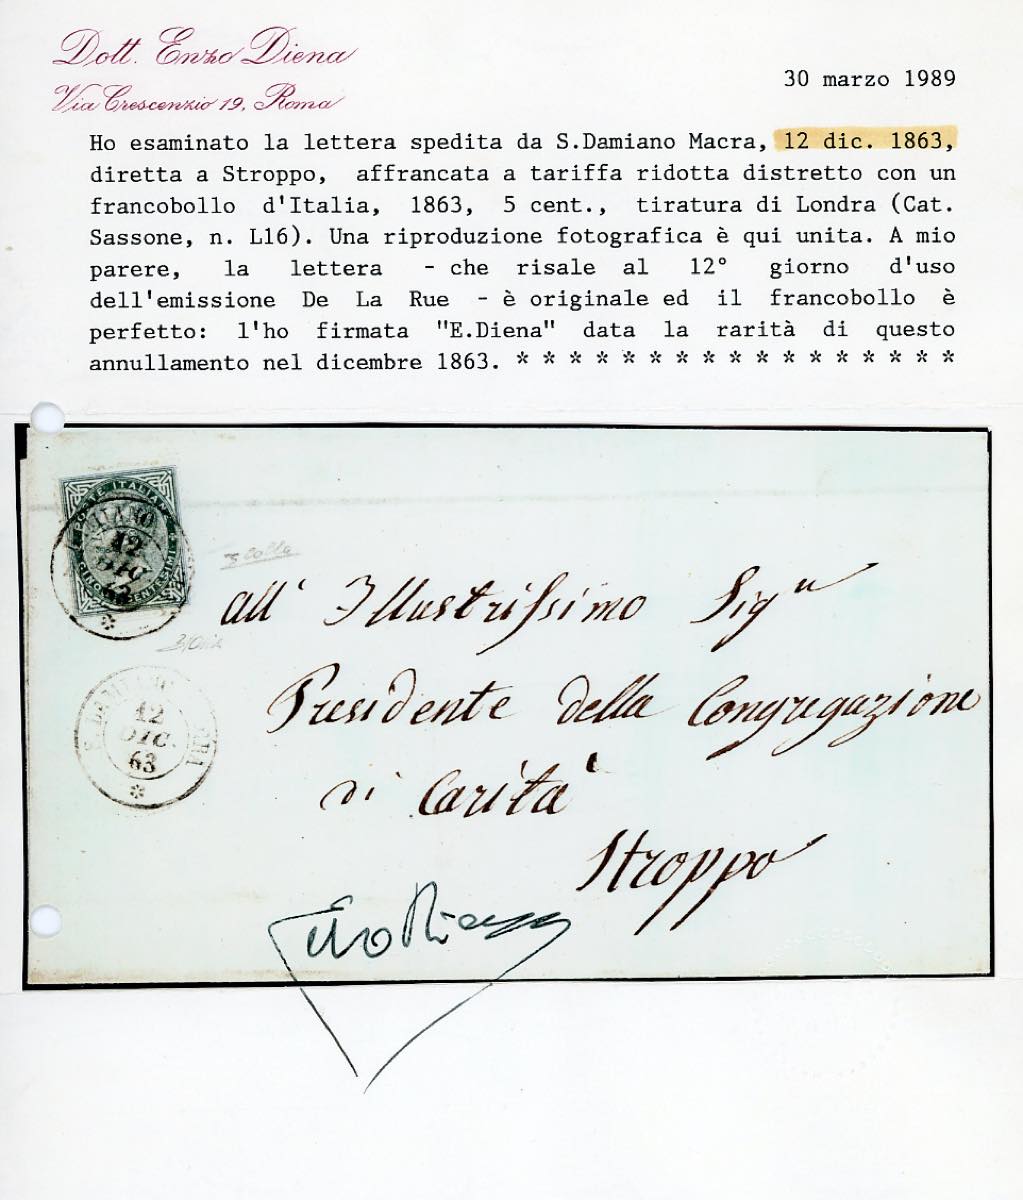 Dott. Enzo Diena
Via Crescenzio 19, Roma
30 marzo 1989
Ho esaminato la lettera spedita da S.Damiano Macra, 12 dic. 1863,
diretta a Stroppo, affrancata a tariffa ridotta distretto con un
francobollo d'Italia, 1863, 5 cent., tiratura di Londra (Cat.
Sassone, n. L16). Una riproduzione fotografica è qui unita. A mio
parere, la lettera - che risale al 12° giorno d'uso
dell'emissione De La Rue - è originale ed il francobollo è
perfetto: l'ho firmata "E.Diena" data la rarità di questo
annullamento nel dicembre 1863. * * * * * * * * * * * * * * * * *
POSTE ITALIANE
12
DIC
CINQUE CENTESIMI
all' Illustrissimo Sigr
Presidente della Congregazione
di Carità
Stroppo
S. DAMIANO
12
DIC.
63
*